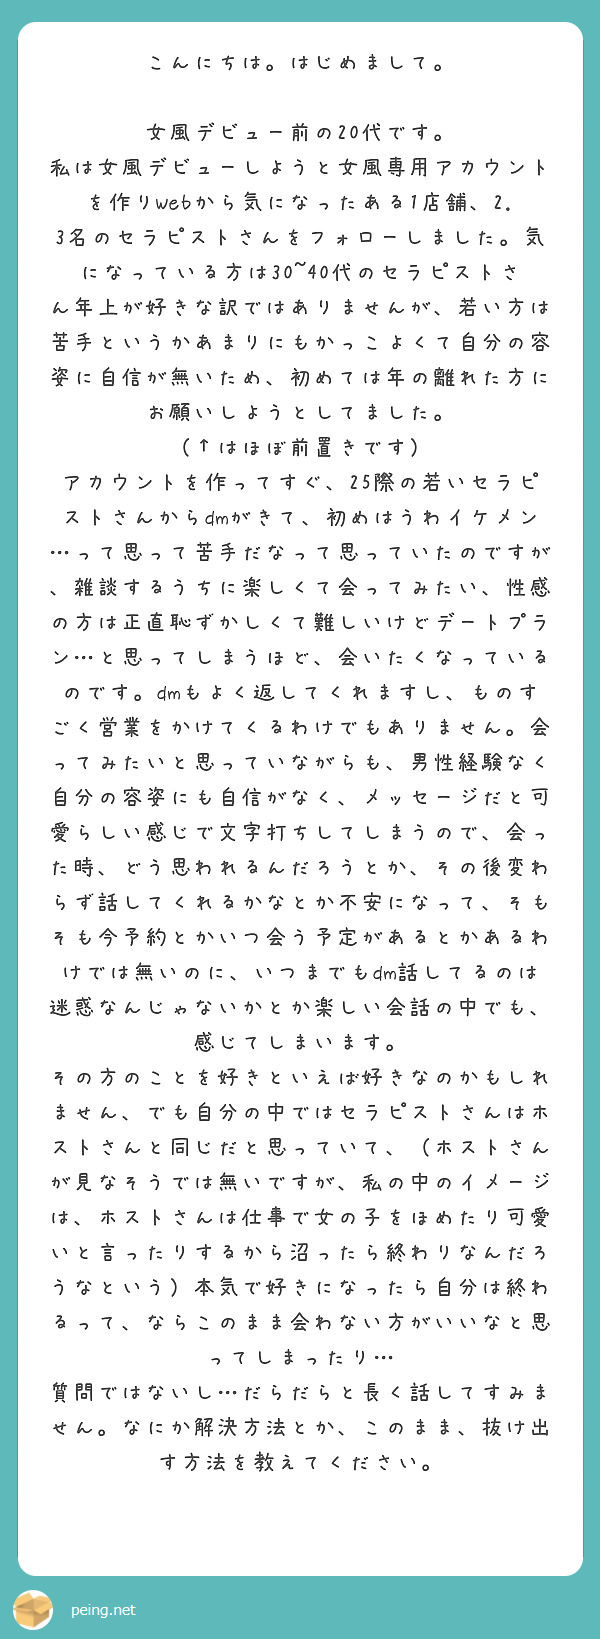 こんにちは。はじめまして。
女風デビュー前の20代です。
私は女風デビューしようと女風専用アカウント
を作りwebから気になったある1店舗、2.
3名のセラピストさんをフォローしました。気
になっている方は30~40代のセラピストさ
ん年上が好きな訳ではありませんが、若い方は
苦手というかあまりにもかっこよくて自分の容
姿に自信が無いため、初めては年の離れた方に
お願いしようとしてました。
(↑はほぼ前置きです)
アカウントを作ってすぐ、25際の若いセラピ
ストさんからdmがきて、初めはうわイケメン
…って思って苦手だなって思っていたのですが
、雑談するうちに楽しくて会ってみたい、性感
の方は正直恥ずかしくて難しいけどデートプラ
ン…と思ってしまうほど、会いたくなっている
のです。dmもよく返してくれますし、ものす
ごく営業をかけてくるわけでもありません。会
ってみたいと思っていながらも、男性経験なく
自分の容姿にも自信がなく、メッセージだと可
愛らしい感じで文字打ちしてしまうので、会っ
た時、どう思われるんだろうとか、その後変わ
らず話してくれるかなとか不安になって、そも
そも今予約とかいつ会う予定があるとかあるわ
けでは無いのに、いつまでもdm話してるのは
迷惑なんじゃないかとか楽しい会話の中でも、
感じてしまいます。
その方のことを好きといえば好きなのかもしれ
ません、でも自分の中ではセラピストさんはホ
ストさんと同じだと思っていて、(ホストさん
が見なそうでは無いですが、私の中のイメージ
は、ホストさんは仕事で女の子をほめたり可愛
いと言ったりするから沼ったら終わりなんだろ
うなという)本気で好きになったら自分は終わ
るって、ならこのまま会わない方がいいなと思
ってしまったり…
質問ではないし…だらだらと長く話してすみま
せん。なにか解決方法とか、このまま、抜け出
す方法を教えてください。
peing.net